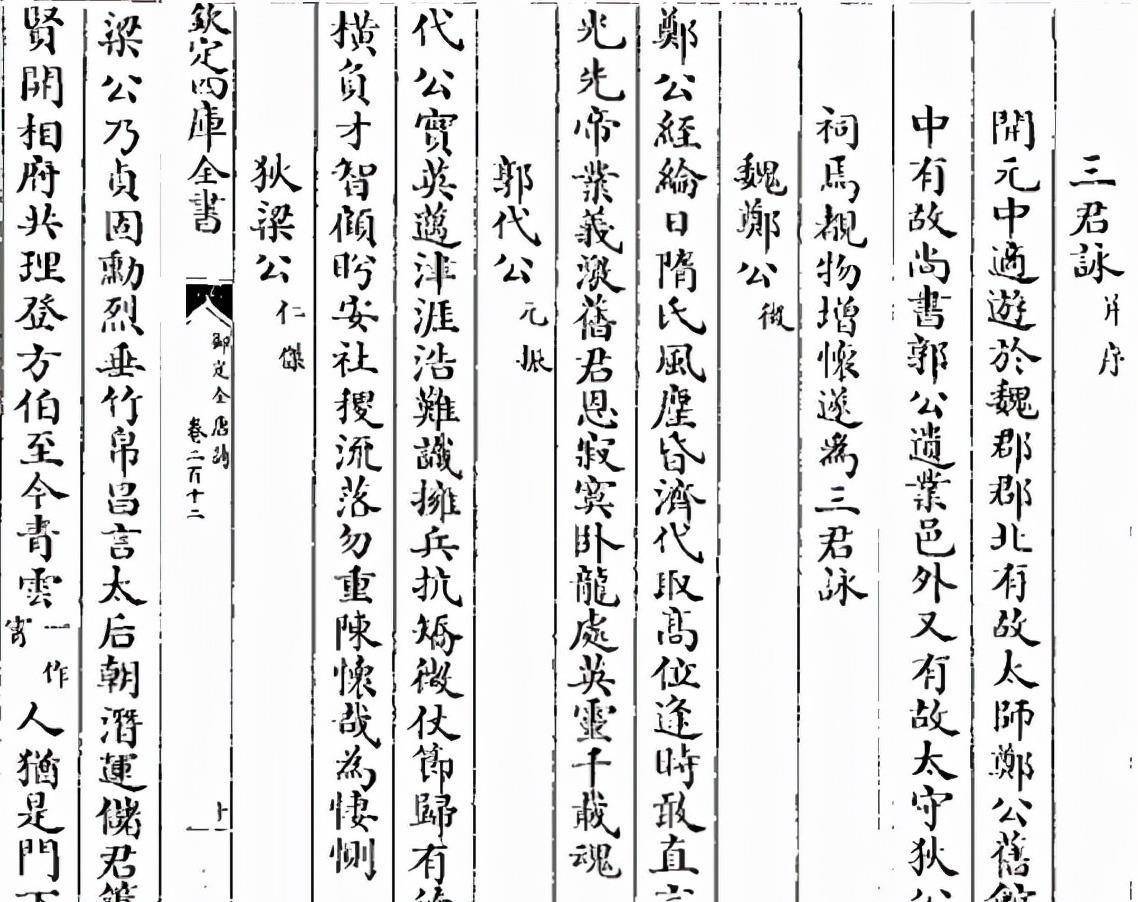 三君詠并序
開元中適遊於魏郡郡北有故太師鄭公舊館
中有故尚書郭公遺業邑外又有故太守狄公
祠焉覩物增懷遂為三君詠
魏鄭公徵
鄭公經綸日隋氏風塵昏濟代取高位逢時敢直言
光先帝業義激舊君恩寂寞卧龍處英靈千載魂
郭代公元振
代公實英邁津涯浩難識擁兵抗矯徵仗節歸有德
橫負才智顧盼安社稷流落勿重陳懷哉為悽惻
狄梁公仁傑
欽定四庫全書
御定全唐詩
卷二百十二
十
梁公乃貞固勳烈垂竹帛昌言太后朝潛運儲君策
賢開相府共理登方伯至今青雲一作霄人猶是門下